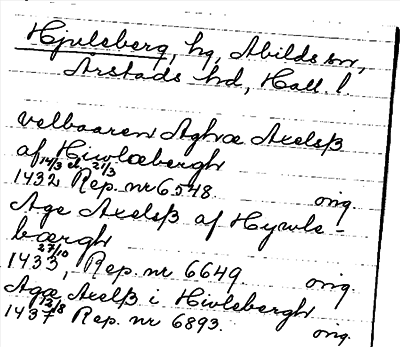 Hjuleberg, hg, Abilds sn,
Årstads hd, Hall. l.
velbaaren Aghæ Axelsß
af Hiwlæbergh
1432 14/3 el. 21/3 Rep. nr 6548. orig.
Age Axelsß af Hywle-
bærgh
1433 27/10, Rep. nr 6649. orig.
Agæ Axelß i Hiwlebergh
1437 12/8 Rep. nr 6893. orig.